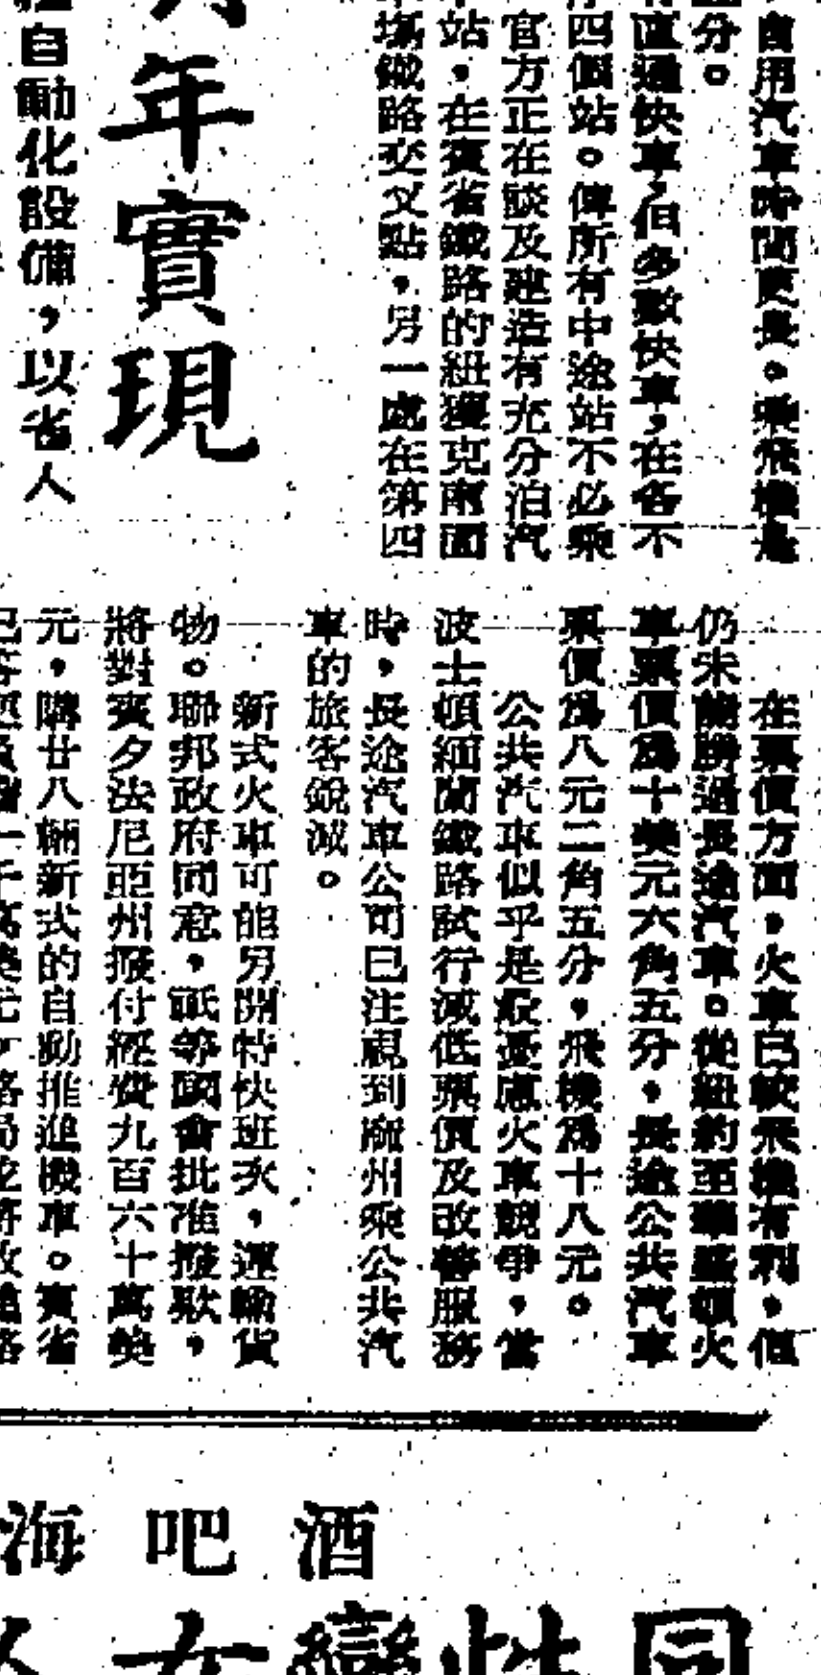 自用汽車時間更長。乘飛機是
分。
直通快車,但多數快車,在各不
四個站。俾所有中途站不必乘
官方正在談及建造有充分泊汽
站,在賓省鐵路的紐獲克南面
鐵路交叉點,另一處在第四
年實現
自動化設備,以省人
在票價方面,火車已較飛機有利,但
仍未能勝過長途汽車。從紐約至華盛頓火
車票價爲十美元六角五分,長途公共汽車
票價爲八元二角五分,飛機爲十八元。
公共汽車似乎是最憂慮火車競爭,當
波士頓緬蘭鐵路試行減低票價及改善服務
時,長途汽車公司已注視到麻州乘公共汽
車的旅客銳減。
新式火車可能另開特快班次,運輸貨
物。聯邦政府同意,祇等國會批准撥欵,
將對賓夕法尼亞州撥付經費九百六十萬美
元,購廿八輛新式的自動推進機車。賓省
酒吧海
同性戀女